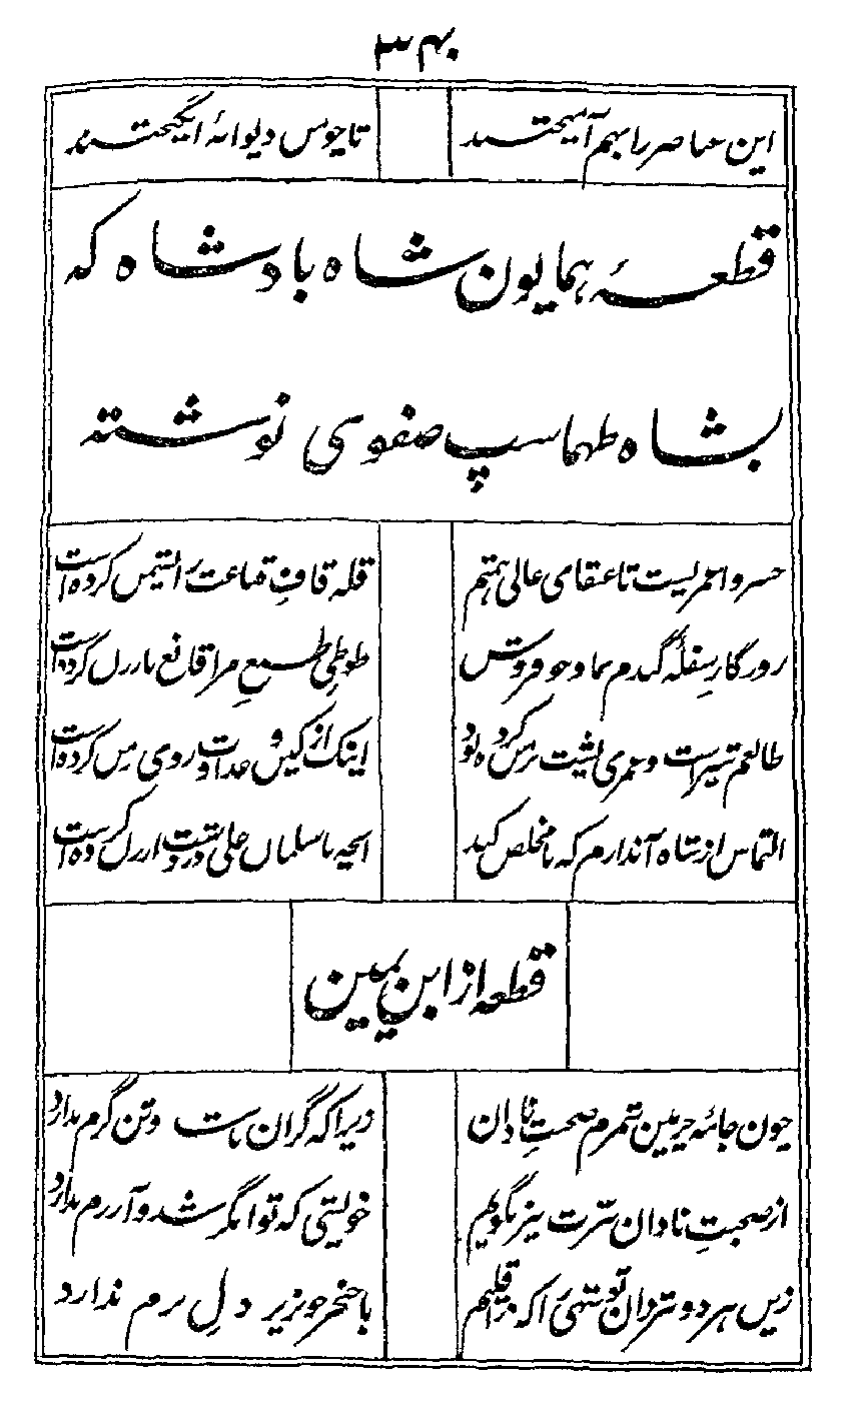 این عناصر را بهم آمیختند تا چو من دیوانهٔ انگیختند
قطعهٔ همایون شاه بادشاه که
بشاه طهماسپ صفوی نوشته
خسروا عمریست تا عنقای عالی همتم قلهٔ قاف قناعت را نشیمن کرده است
روزگار سفلهٔ گندم نما و جو فروش طوطی طبع مرا قانع بارزن کرده است
طالعم شیراست و عمری پشت بر من کرده بود اینک از کین و عداوت روی من کرده است
التماس از شاه آن دارم که با مخلص کند انچه با سلمان علی در دشت ارژن کرده است
قطعه از ابن یمین
چون جامهٔ چرمین شمرم صحبتِ نادان زیرا که گران باشد و تن گرم ندارد
از صحبتِ نادان بترت نیز بگویم خویشی که توانگر شد و آزرم ندارد
زین هر دو بتر دان تو شهی را که در اقلیم با خنجر خونریز دلِ نرم ندارد